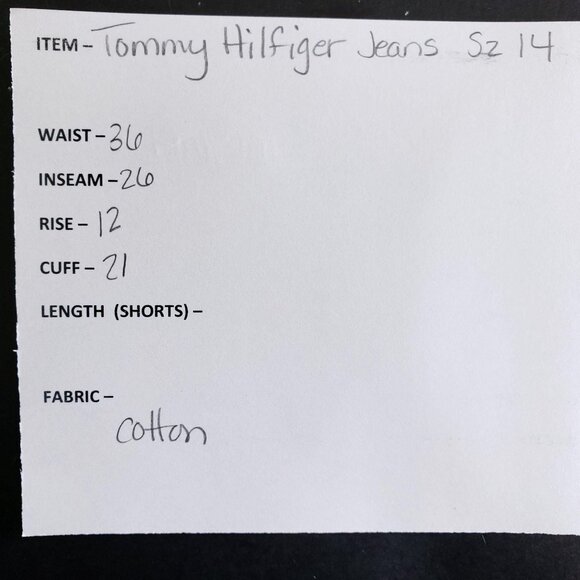 ITEM – Tommy Hilfiger Jeans Sz 14
WAIST – 36
INSEAM – 26
RISE – 12
CUFF – 21
LENGTH (SHORTS) –
FABRIC –
cotton